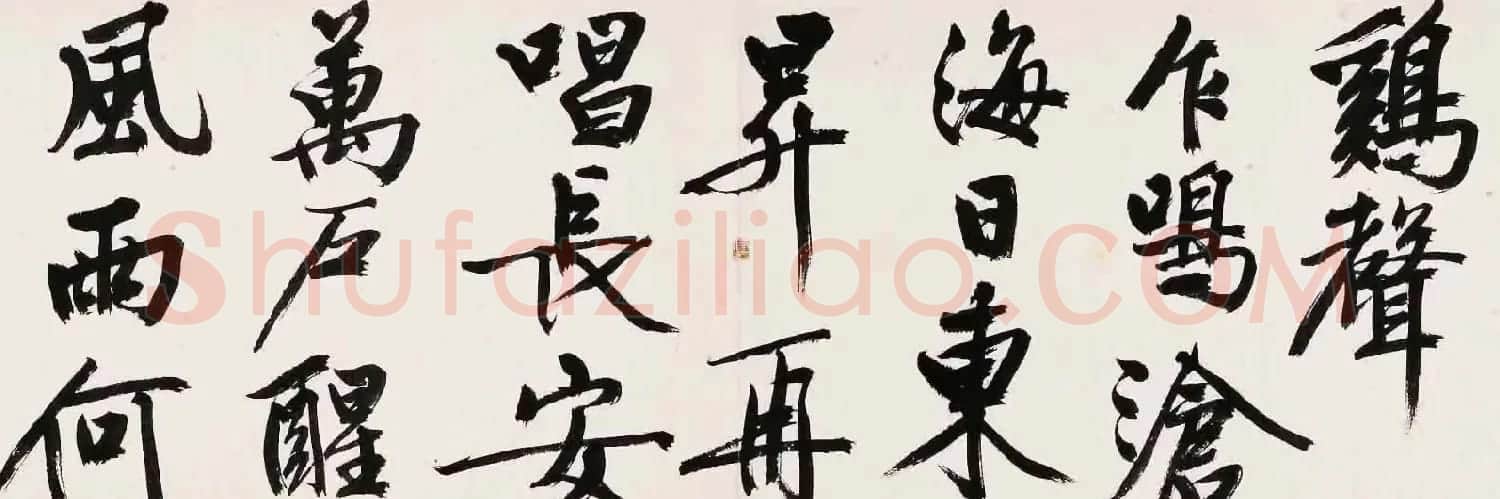 鷄聲
乍鳴滄
海日東
昇再
唱長安
萬戶醒
風雨何
Shufaziliao.COM